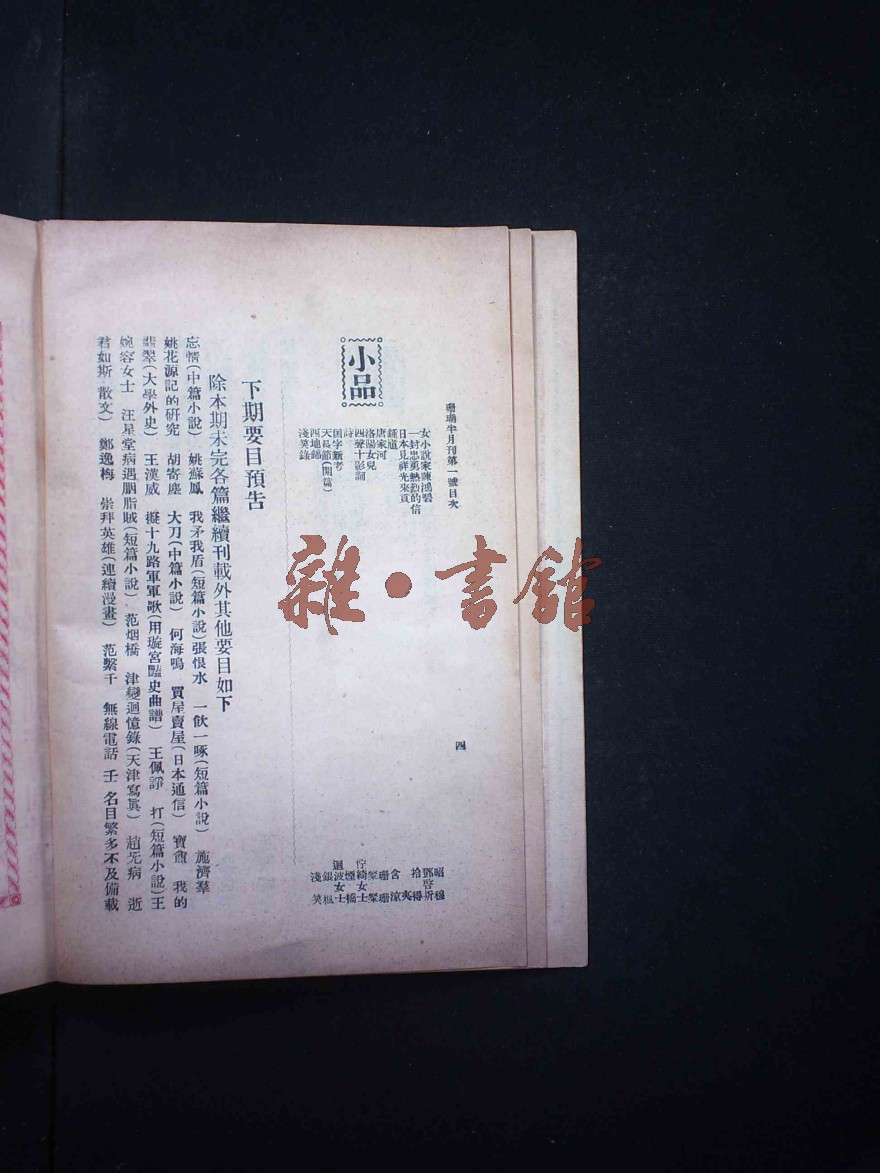 珊瑚半月刊第一號目次
四
小品
女小說家陳鴻璧
一封忠勇熱烈的信
日本見祥光來直
鍾馗
唐家河
洛陽女兒
四聲十影詞
詩
国字新考
天局節(開篇)
四地錦
淺笑錄
昭穆
鄧啓炘
拾得
含涼
珊珊
縏縏
佇綺女士
煙橋
迴波女士
銀楓
淺笑
下期要目預告
除本期未完各篇繼續刊載外其他要目如下
忘情(中篇小說) 姚蘇鳳 我矛我盾(短篇小說)張恨水 一飲一啄(短篇小說) 施濟羣
姚花源記的研究 胡寄塵 大刀(中篇小說) 何海鳴 買屋賣屋(日本通信) 寶龕 我的
翡翠(大學外史) 王漢威 擬十九路軍軍歌(用璇宮豔史曲譜) 王佩諍 打(短篇小說)王
婉容女士 汪星堂病遇胭脂賊(短篇小說) 范烟橋 津變迴憶錄(天津寫眞) 趙旡病 逝
君如斯(散文) 鄭逸梅 崇拜英雄(連續漫畫) 范縏千 無線電話 壬 名目繁多不及備載
雜·書館